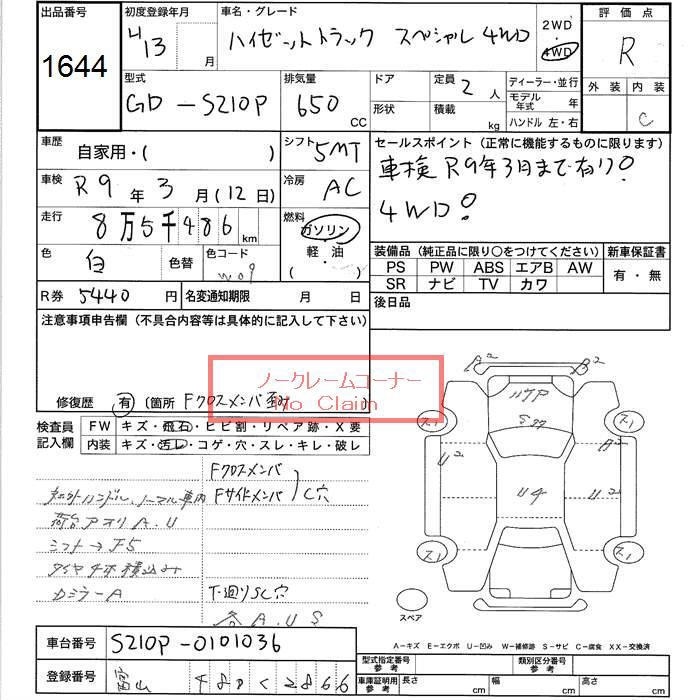 出品番号
1644
初度登録年月
H13 月
車名・グレード
ハイゼットトラック スペシャル 4WD
2WD
4WD
評価点
R
外装 内装
C
型式
GD-S210P
排気量
650 CC
ドア
形状
定員
2 人
積載 kg
ディーラー・並行
モデル年式 年
ハンドル 左・右
車歴
自家用・( )
シフト
5MT
セールスポイント (正常に機能するものに限ります)
車検 R9年3月まで有り!
4WD!
車検
R9年3月(12日)
冷房
AC
走行
8万5千486 km
燃料
ガソリン
軽・油
( )
色
白
色替
色コード
W09
装備品 (純正品に限り○をつけてください)
新車保証書
PS PW ABS エアB AW
SR ナビ TV カワ
有・無
R券 5440 円
名変通知期限 月 日
後日品
注意事項申告欄 (不具合内容等は具体的に記入して下さい)
ノークレームコーナー
No Claim
修復歴 有 (箇所 Fクロスメンバ )
検査員記入欄
FW キズ・飛石・ヒビ割・リペア跡・X要
内装 キズ・汚レ・コゲ・穴・スレ・キレ・破レ
Fクロスメンバ
Fサイドメンバ C穴
荷台アオリ A.U
シフト→F5
タイヤ4本積込み
カミラーA
下廻りSC穴
各A.U.S
A2
B2
S
U2
A2
U4
スペア
A-キズ E-エクボ U-凹み W-補修跡 S-サビ C-腐食 XX-交換済
車台番号
S210P-0101036
登録番号
富山 480 く 2866
型式指定番号 参考
類別区分番号 参考
車庫証明用 参考
長さ cm
幅 cm
高さ cm